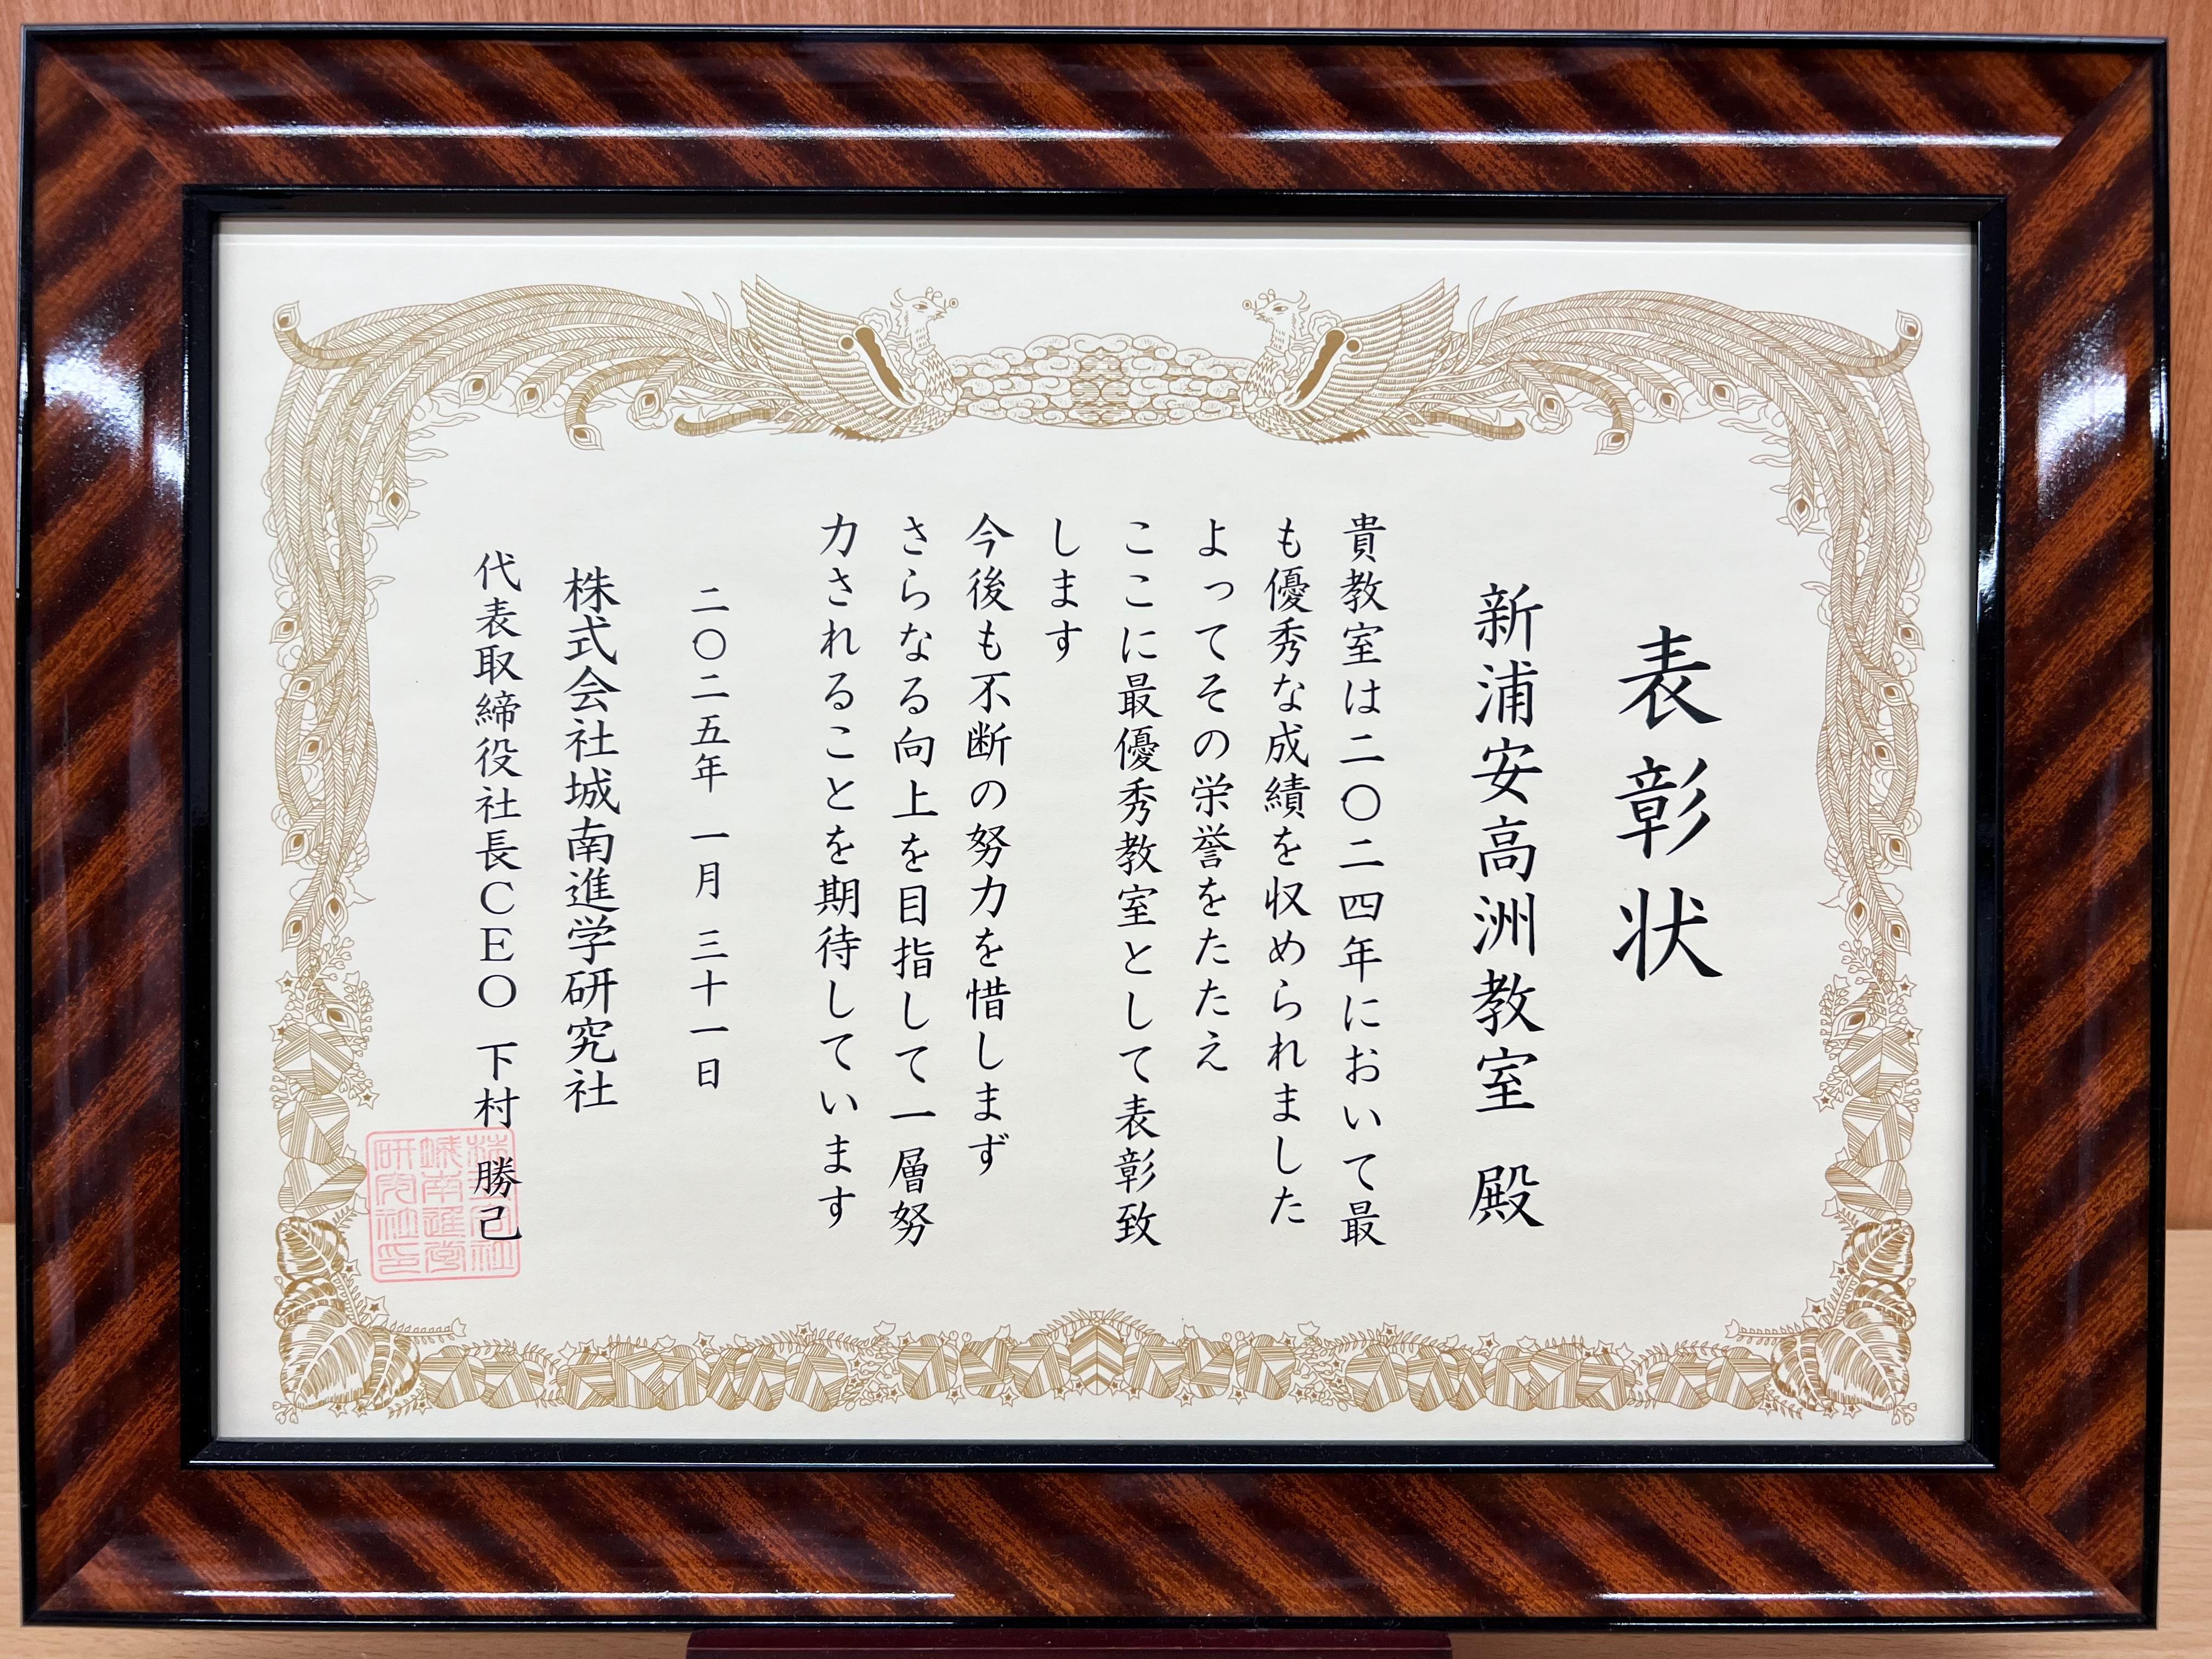 表彰状
新浦安高洲教室 殿
貴教室は二〇二四年において最
も優秀な成績を収められました
よってその栄誉をたたえ
ここに最優秀教室として表彰致
します
今後も不断の努力を惜しまず
さらなる向上を目指して一層努
力されることを期待しています
二〇二五年 一月 三十一日
株式会社城南進学研究社
代表取締役社長ＣＥＯ 下村 勝己
株式会社
城南進学
研究社印